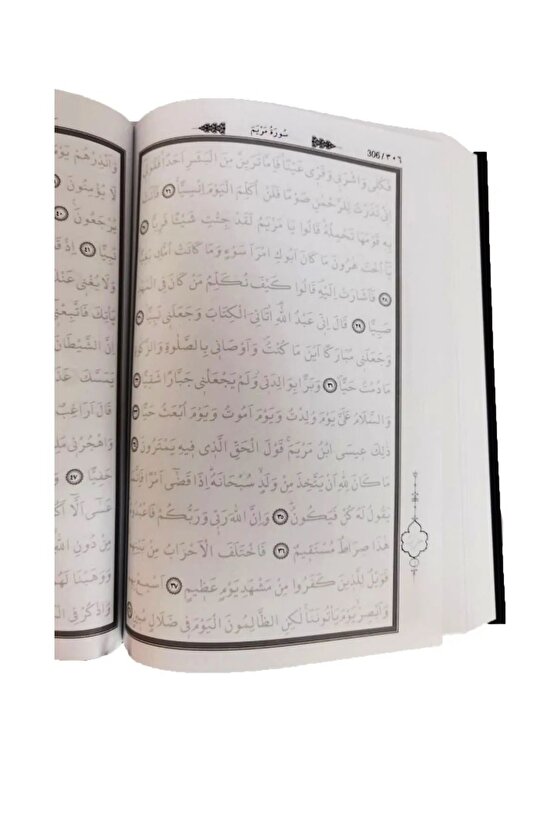 سُورَةُ مَرْيَمَ
306/٣٠٦
فَكُلِي وَاشْرَبِي وَقَرِّي عَيْنًا فَإِمَّا تَرَيِنَّ مِنَ الْبَشَرِ أَحَدًا فَقُولِي
اِنِّي نَذَرْتُ لِلرَّحْمٰنِ صَوْمًا فَلَنْ اُكَلِّمَ الْيَوْمَ اِنْسِيًّا ٢٦ فَاَتَتْ
بِهِ قَوْمَهَا تَحْمِلُهُ قَالُوا يَا مَرْيَمُ لَقَدْ جِئْتِ شَيْئًا فَرِيًّا ٢٧
يَٓا اُخْتَ هٰرُونَ مَا كَانَ اَبُوكِ امْرَاَ سَوْءٍ وَمَا كَانَتْ اُمُّكِ بَغِيًّا
٢٨ فَاَشَارَتْ اِلَيْهِ قَالُوا كَيْفَ نُكَلِّمُ مَنْ كَانَ فِي الْمَهْدِ
صَبِيًّا ٢٩ قَالَ اِنِّي عَبْدُ اللّٰهِ اٰتَانِيَ الْكِتَابَ وَجَعَلَنِي نَبِيًّا ٣٠
وَجَعَلَنِي مُبَارَكًا اَيْنَ مَا كُنْتُ وَاَوْصَانِي بِالصَّلٰوةِ وَالزَّكٰوةِ
مَا دُمْتُ حَيًّا ٣١ وَبَرًّا بِوَالِدَتِي وَلَمْ يَجْعَلْنِي جَبَّارًا شَقِيًّا ٣٢
وَالسَّلَامُ عَلَيَّ يَوْمَ وُلِدْتُ وَيَوْمَ اَمُوتُ وَيَوْمَ اُبْعَثُ حَيًّا ٣٣
ذٰلِكَ عِيسَى ابْنُ مَرْيَمَ قَوْلَ الْحَقِّ الَّذِي فِيهِ يَمْتَرُونَ ٣٤
مَا كَانَ لِلّٰهِ اَنْ يَتَّخِذَ مِنْ وَلَدٍ سُبْحَانَهُ اِذَا قَضٰٓى اَمْرًا فَاِنَّمَا
يَقُولُ لَهُ كُنْ فَيَكُونُ ٣٥ وَاِنَّ اللّٰهَ رَبِّي وَرَبُّكُمْ فَاعْبُدُوهُ
هٰذَا صِرَاطٌ مُسْتَقِيمٌ ٣٦ فَاخْتَلَفَ الْاَحْزَابُ مِنْ بَيْنِهِمْ
فَوَيْلٌ لِلَّذِينَ كَفَرُوا مِنْ مَشْهَدِ يَوْمٍ عَظِيمٍ ٣٧ اَسْمِعْ بِهِمْ
وَاَبْصِرْ يَوْمَ يَأْتُونَنَا لٰكِنِ الظَّالِمُونَ الْيَوْمَ فِي ضَلَالٍ مُبِينٍ ٣٨
وَاَنْذِرْهُمْ يَوْمَ
لَا يُؤْمِنُونَ
يُرْجَعُونَ ٤٠
نَبِيًّا ٤١ اِذْ قَالَ
وَلَا يُغْنِي عَنْكَ
يَأْتِكَ فَاتَّبِعْنِي
اِنَّ الشَّيْطَانَ
يَمَسَّكَ عَذَابٌ
قَالَ اَرَاغِبٌ
وَاهْجُرْنِي مَلِيًّا
حَفِيًّا ٤٧
عَسٰٓى اَلَّٓا اَكُونَ
مِنْ دُونِ اللّٰهِ
وَوَهَبْنَا لَهُمْ
وَاذْكُرْ فِي الْكِتَابِ